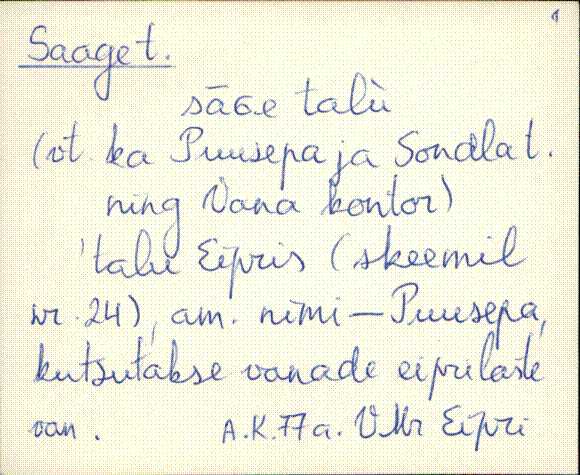 Saaget.
sāɢe talù
(vt. ka Puusepa ja Sondla t.
ning Vana kontor)
'talu Eipris (skeemil
nr. 24), am. nimi — Puusepa,
kutsutakse vanade eiprilaste
van. A.K. 77 a. VMr Eipri